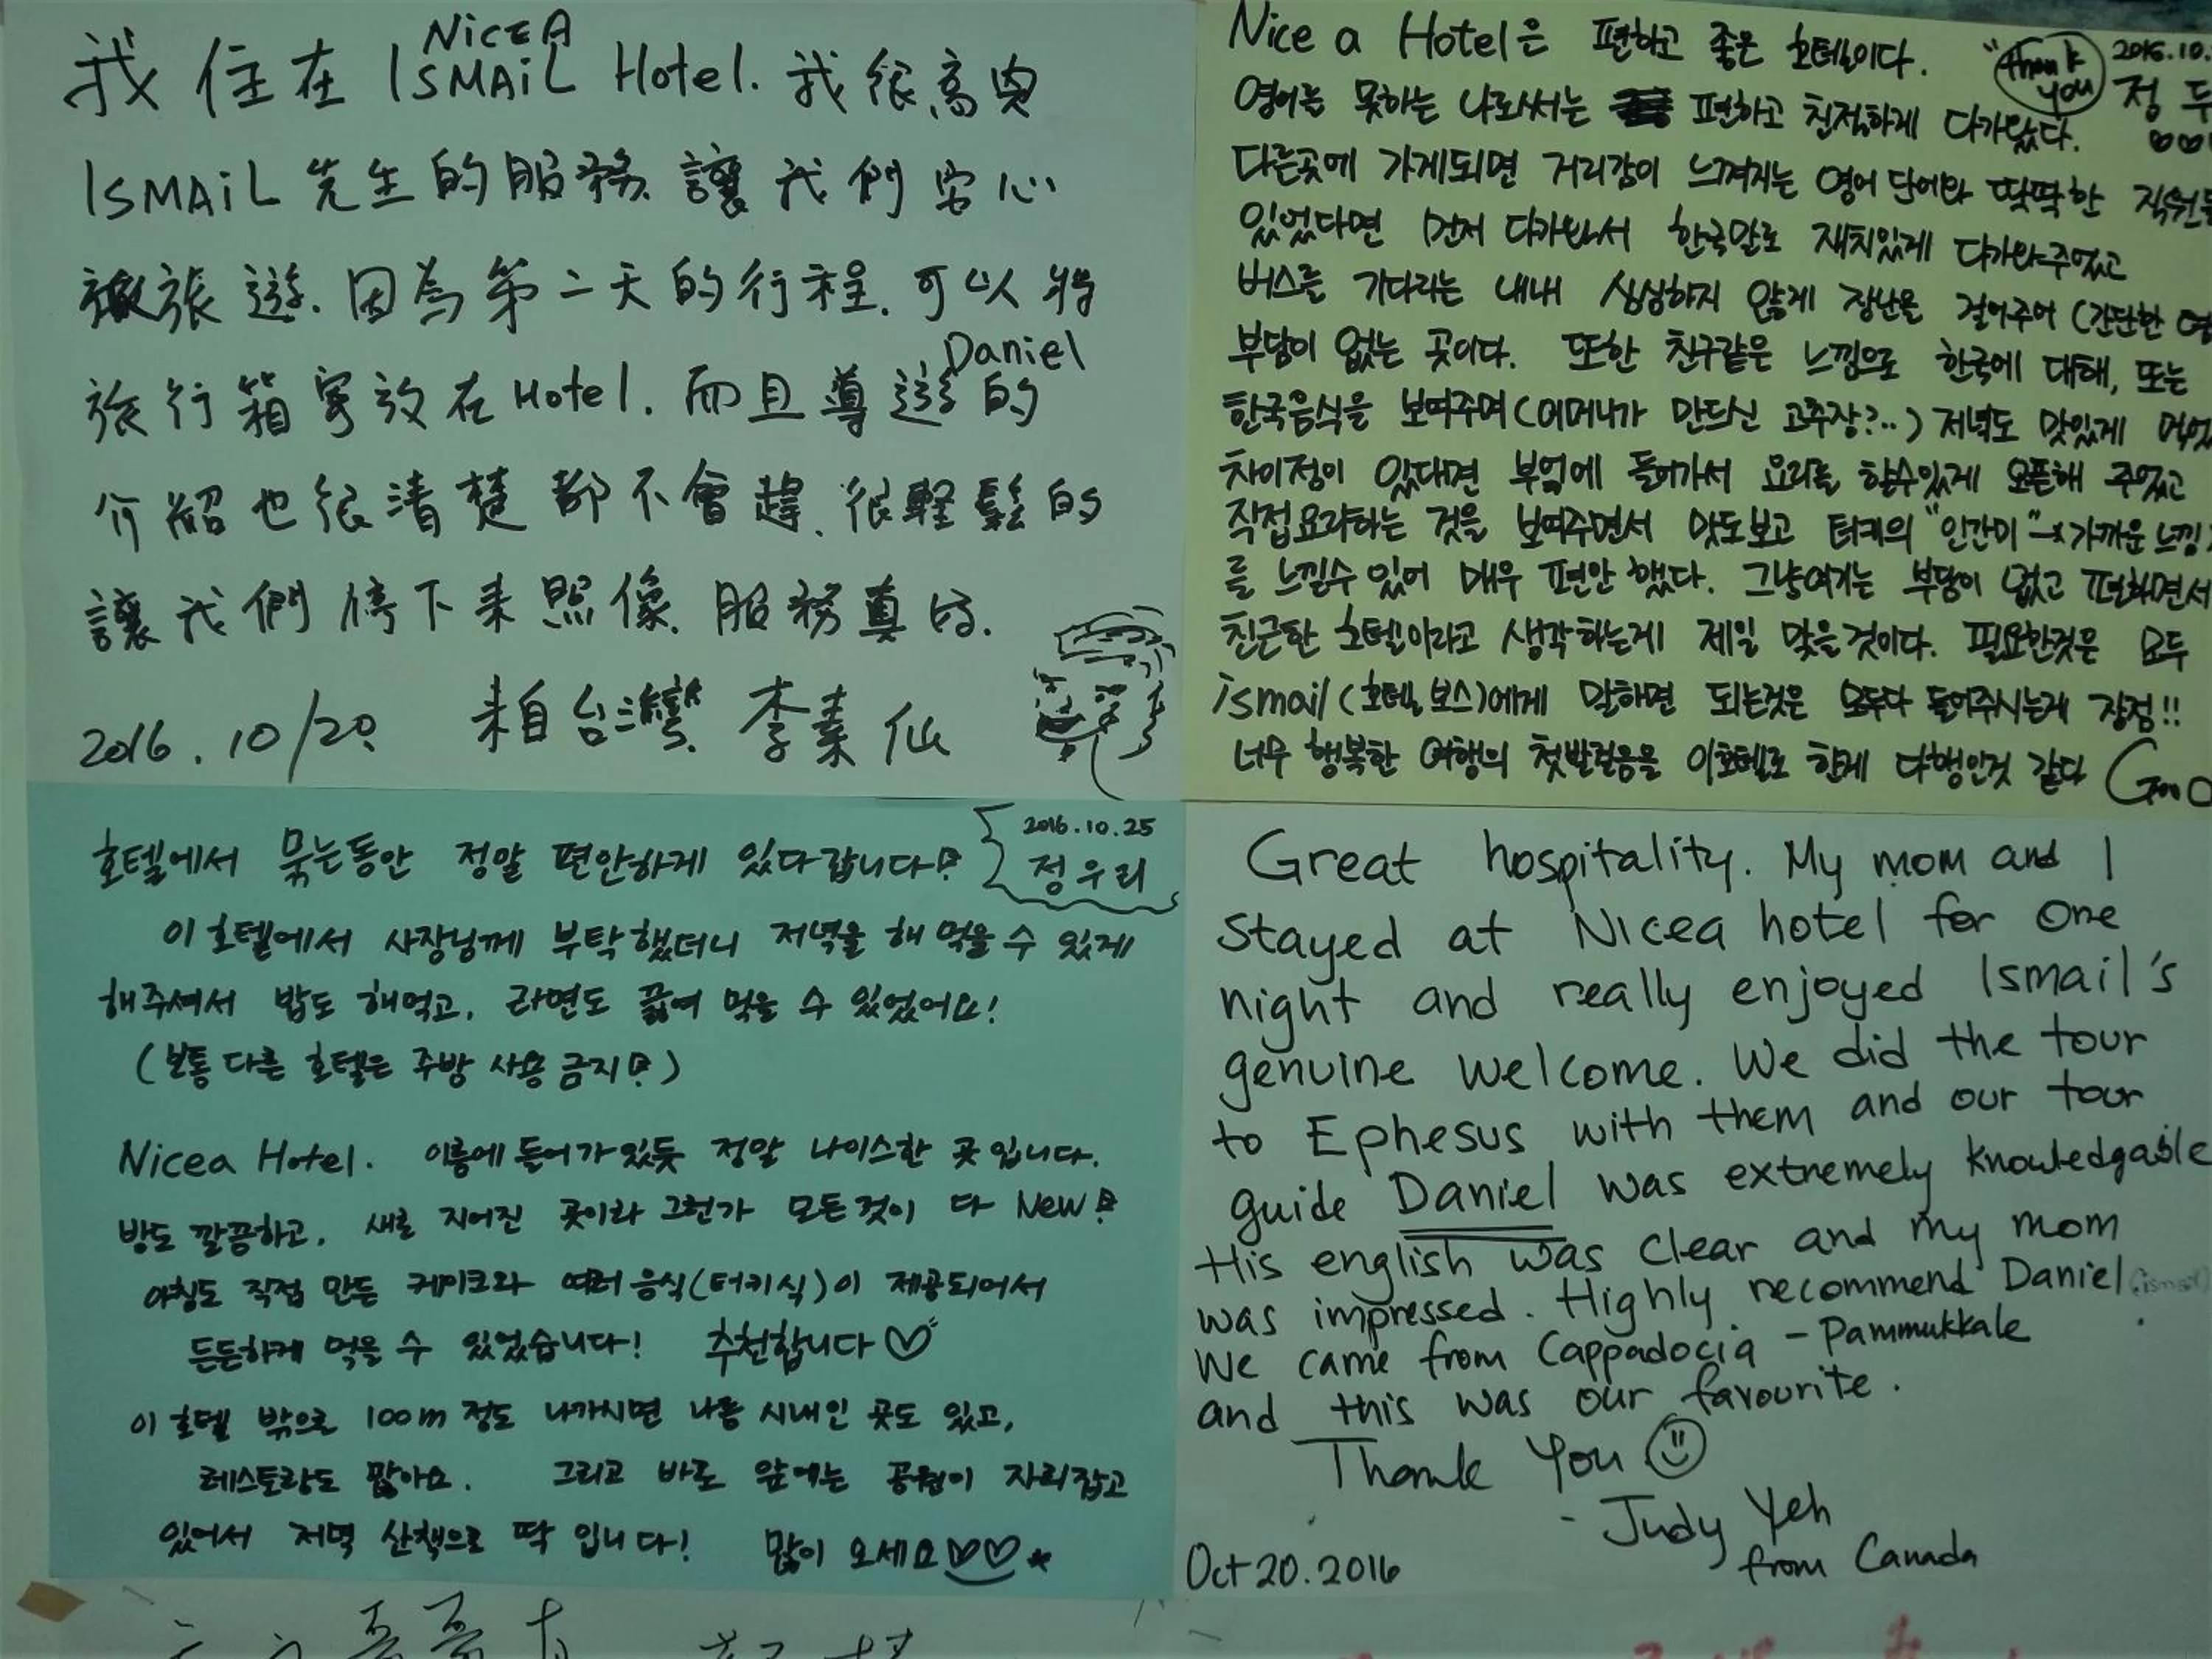 我住在 ISMAIL Hotel. 我很高興
NiCEA
ISMAIL 先生的服務 讓我們安心
旅遊. 因為第二天的行程. 可以將
Daniel
旅行箱寄放在 Hotel. 而且導遊的
介紹也很清楚都不會趕. 很輕鬆的
讓我們停下來照像. 服務真好.
2016.10/20. 來自台灣 李素仙
Nice a Hotel은 편하고 좋은 호텔이다. "Thank you 2016.10.
영어를 못하는 나로써는 편하고 친절하게 다가왔다. 정
다른곳에 가게되면 거리감이 느껴지는 영어 단어와 딱딱한 직원
있었다면 먼저 다가와서 한국말로 재치있게 다가와주었고
버스를 기다리는 내내 심심하지 않게 장난을 걸어주어 (간단한
부담이 없는 곳이다. 또한 친구같은 느낌으로 한국에 대해, 또는
한국음식을 보여주며 (어머니가 만드신 고추장?..) 저녁도 맛있게
차이점이 있다면 부엌에 들어가서 요리를 할수있게 오픈해 주었고
직접요리하는 것을 보여주면서 맛도보고 터키의 "인간미"→가까운 느낌
를 느낄수 있어 매우 편안했다. 그냥여기는 부담이 없고 편하면서
친근한 호텔이라고 생각하는게 제일 맞을것이다. 필요한것은 모두
ismail (호텔 보스)에게 말하면 되는것은 모두다 들어주시는게 장점!!
너무 행복한 여행의 첫발걸음을 이호텔로 한게 다행인것 같다 Goo
호텔에서 묵는동안 정말 편안하게 있다갑니다! 2016.10.25
정우리
이 호텔에서 사장님께 부탁했더니 저녁을 해 먹을 수 있게
해주셔서 밥도 해먹고, 라면도 끓여 먹을 수 있었어요!
(보통 다른 호텔은 주방 사용 금지!)
Nicea Hotel. 이름에 들어가있듯 정말 나이스한 곳 입니다.
방도 깔끔하고, 새로 지어진 곳이라 그런가 모든것이 다 New!
아침도 직접 만든 케이크와 여러 음식(터키식)이 제공되어서
든든하게 먹을 수 있었습니다! 추천합니다♡
이 호텔 밖으로 100m 정도 나가시면 나름 시내인 곳도 있고,
레스토랑도 많아요. 그리고 바로 앞에는 공원이 자리잡고
있어서 저녁 산책으로 딱 입니다! 많이 오세요♡♡
Great hospitality. My mom and I
stayed at Nicea hotel for one
night and really enjoyed Ismail's
genuine welcome. We did the tour
to Ephesus with them and our tour
guide Daniel was extremely knowledgable
His english was clear and my mom
was impressed. Highly recommend Daniel (ismail)
We came from Cappadocia - Pammukkale
and this was our favourite.
Thank You
- Judy Yeh
from Canada
Oct 20.2016